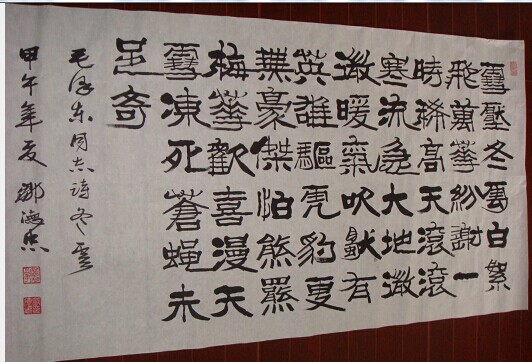 雪壓冬雲白絮
飛萬華紛謝一
時稀高天滾滾
寒流急大地微
微暖氣吹獨有
英雄驅虎豹更
無豪傑怕熊羆
梅華歡喜漫天
雪凍死蒼蝇未
足奇
毛泽东同志诗冬雲
甲午年夏